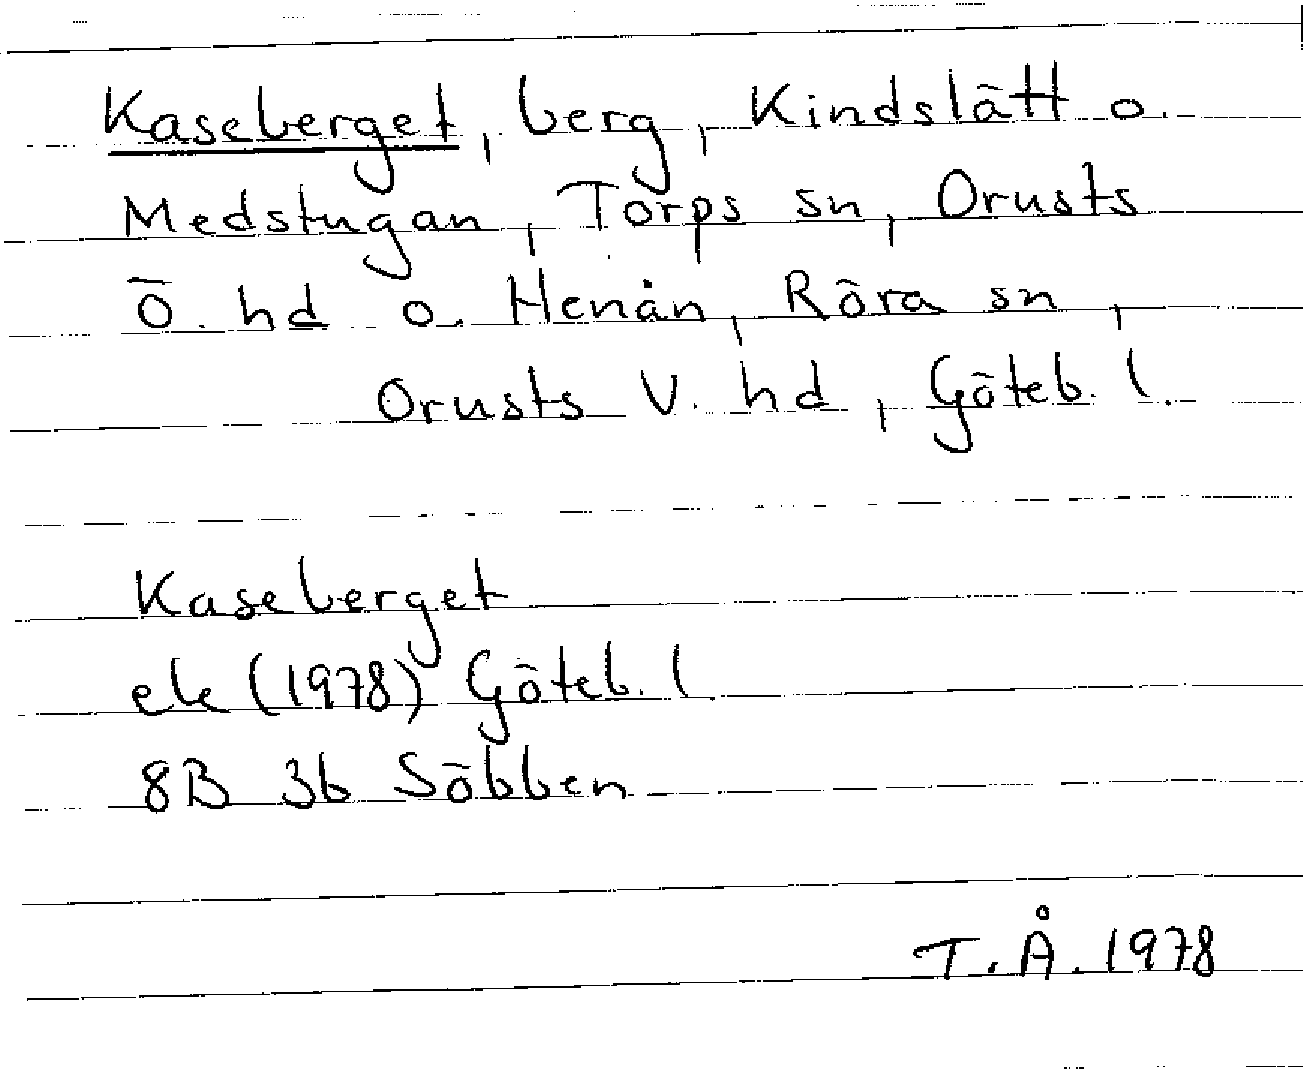 Kaseberget, berg, Kindslätt o.
Medstugan, Torps sn, Orusts
Ö. hd o. Henån, Röra sn,
Orusts V. hd, Göteb. l.
Kaseberget
ek (1978) Göteb. l
8B 3b Söbben
T. Å. 1978